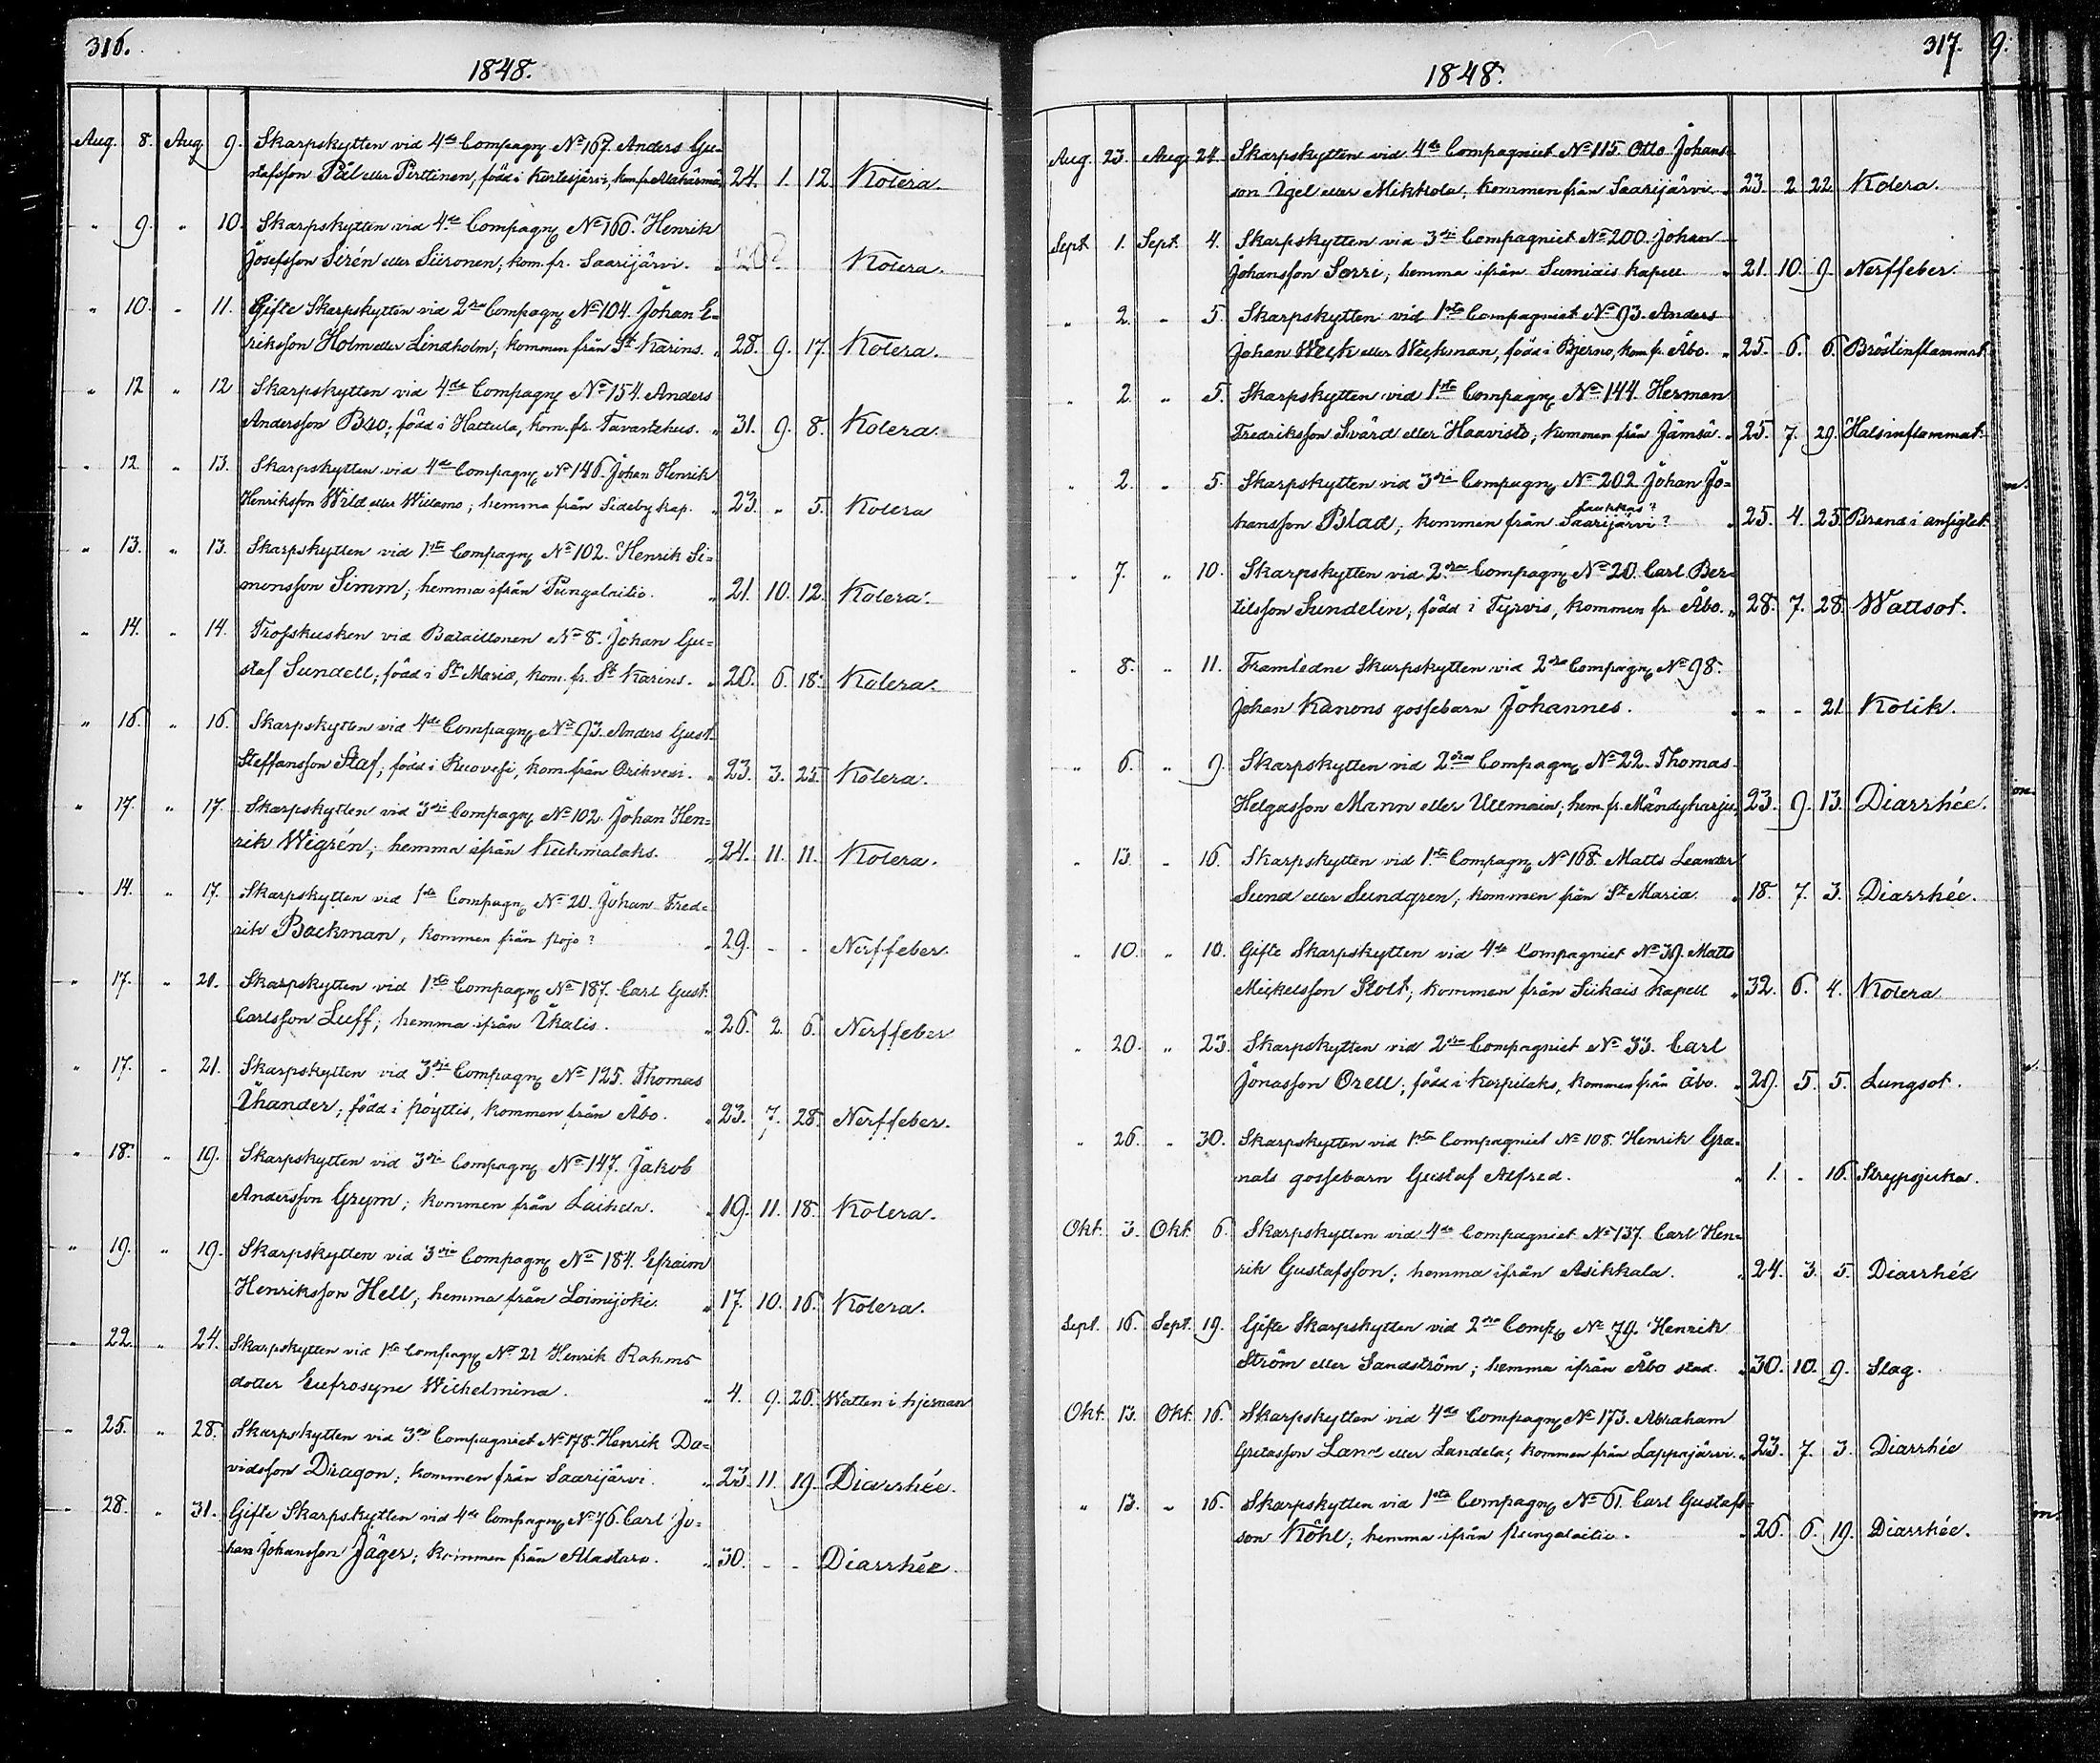 316.
1848.
Aug. 8. Aug. 9. Skarpskytten vid 4de Compagn No 167. Anders Gu-
stafsson Pål eller Perttinen, född i Kortesjärvi, kom. fr. Alahärmä, 24. 1. 12. Kolera.
" 9. " 10. Skarpskytten vid 4de Compagn No 160. Henrik
Josefsson Sirén eller Siironen; kom. fr. Saarijärvi. " 20? Kolera.
" 10. " 11. Gifte Skarpskytten vid 2dra Compagn No 104. Johan E-
riksson Holm eller Lindholm; kommen från St Karins. " 28. 9. 17. Kolera.
" 12 " 12 Skarpskytten vid 4de Compagn No 154. Anders
Andersson Bro; född i Hattula, kom. fr. Tavastehus. " 31. 9. 8. Kolera.
" 12. " 13. Skarpskytten vid 4de Compagn No 146. Johan Henrik
Henriksson Wild eller Willamo; hemma från Sideby kap. " 23. " 5. Kolera
" 13. " 13. Skarpskytten vid 1sta Compagn No 102. Henrik Si-
monsson Simm; hemma ifrån Pungalaitio. " 21. 10. 12. Kolera.
" 14. " 14. Trosskusken vid Bataillonen No 8. Johan Gu-
staf Sundell; född i St Maria, kom. fr. St Karins. " 20. 6. 18. Kolera.
" 16. " 16. Skarpskytten vid 4de Compagn No 93. Anders Gust.
Steffansson Staf; född i Ruovesi, kom. från Orihvesi. " 23. 3. 25. Kolera.
" 17. " 17. Skarpskytten vid 3dje Compagn No 102. Johan Hen-
rik Wigrén; hemma ifrån Kuhmalaks. " 24. 11. 11. Kolera.
" 14. " 17. Skarpskytten vid 1sta Compagn No 20. Johan Fred-
rik Backman, kommen från Pojo? " 29. - - Nerffeber.
" 17. " 20. Skarpskytten vid 1sta Compagn No 187. Carl Gust.
Carlsson Luff; hemma ifrån Ikalis. " 26. 2. 6. Nerffeber
" 17. " 21. Skarpskytten vid 3dje Compagn No 125. Thomas
Thander; född i Pöyttis, kommen från Åbo. " 23. 7. 28. Nerffeber.
" 18. " 19. Skarpskytten vid 3dje Compagn No 147. Jakob
Andersson Grym; kommen från Laihela. " 19. 11. 18. Kolera.
" 19. " 19. Skarpskytten vid 3dje Compagn No 184. Efraim
Henriksson Hell; hemma från Loimijoki. " 17. 10. 16. Kolera.
" 22. " 24. Skarpskytten vid 1sta Compagn No 21 Henrik Rahms
dotter Eufrosyne Wilhelmina. " 4. 9. 26. Watten i hjernan
" 25. " 28. Skarpskytten vid 3dje Compagniet No 178. Henrik Da-
vidsson Dragon; kommen från Saarijärvi. " 23. 11. 19. Diarrhée.
" 28. " 31. Gifte Skarpskytten vid 4de Compagn No 76. Carl Jo-
han Johansson Jäger; kommen från Alastaro. " 30. - - Diarrhée.
317.
1848.
Aug. 23. Aug. 24. Skarpskytten vid 4de Compagniet No 115. Otto Johans-
son Igel eller Mikkola, kommen från Saarijärvi. " 23. 2 22 Kolera.
Sept. 1. Sept. 4. Skarpskytten vid 3dje Compagniet No 200. Johan
Johansson Sorri; hemma ifrån Sumiais kapell. " 21. 10. 9. Nerffeber.
" 2. " 5. Skarpskytten vid 1sta Compagniet No 93. Anders
Johan Weck eller Weckman, född i Bjerno, kom. fr. Åbo. " 25. 6. 6. Bröstinflammat.
" 2. " 5. Skarpskytten vid 1sta Compagn No 144. Herman
Fredriksson Svärd eller Haavisto; kommen från Jämsä. " 25. 7. 29. Halsinflammat.
" 2. " 5. Skarpskytten vid 3dje Compagn No 202. Johan Jo-
Laukkas?
hansson Blad; kommen från Saarijärvi? " 25. 4. 25. Brand i ansigtet.
" 7. " 10. Skarpskytten vid 2dra Compagn No 20. Carl Ber-
tilsson Sundelin, född i Tyrvis, kommen fr. Åbo. " 28. 7. 28. Wattsot.
" 8. " 11. Framledne Skarpskytten vid 2dra Compagn No 98.
Johan Kanons gossebarn Johannes. " - - 21. Kolik.
" 6. " 9. Skarpskytten vid 2dra Compagn No 22. Thomas
Helgasson Mann eller Ullmain; hem. fr. Mändyharju, 23. 9. 13. Diarrhée.
" 13. " 16. Skarpskytten vid 1sta Compagn No 168. Matts Leander
Sund eller Sundgren, kommen från St Maria. " 18. 7. 3. Diarrhée.
" 10. " 10. Gifte Skarpskytten vid 4de Compagniet No 39. Matts
Mickelsson Stolt; kommen från Siikais Kapell " 32. 6. 4. Kolera
" 20. " 23. Skarpskytten vid 2dra Compagniet No 33. Carl
Jonasson Orell; född i Korpilaks, kommen från Åbo. " 29. 5. 5. Lungsot.
" 26. " 30. Skarpskytten vid 1sta Compagniet No 108. Henrik Gra-
nats gossebarn Gustaf Alfred. " 1. - 16. Strypsjuka.
Okt. 3. Okt. 6. Skarpskytten vid 4de Compagniet No 137. Carl Hen-
rik Gustafsson; hemma ifrån Asikkala. " 24. 3. 5. Diarrhée
Sept. 16. Sept. 19. Gifte Skarpskytten vid 2dra Comp No 79. Henrik
Ström eller Sandström; hemma ifrån Åbo stad. " 30. 10. 9. Slag.
Okt. 13. Okt. 16. Skarpskytten vid 4de Compagn No 173. Abraham
Gretasson Land eller Landela; kommen från Lappajärvi. " 23. 7. 3. Diarrhée
" 13. " 16. Skarpskytten vid 1sta Compagn No 61. Carl Gustafs-
son Köhl; hemma ifrån Pungalaitio. " 26. 6. 19. Diarrhée.